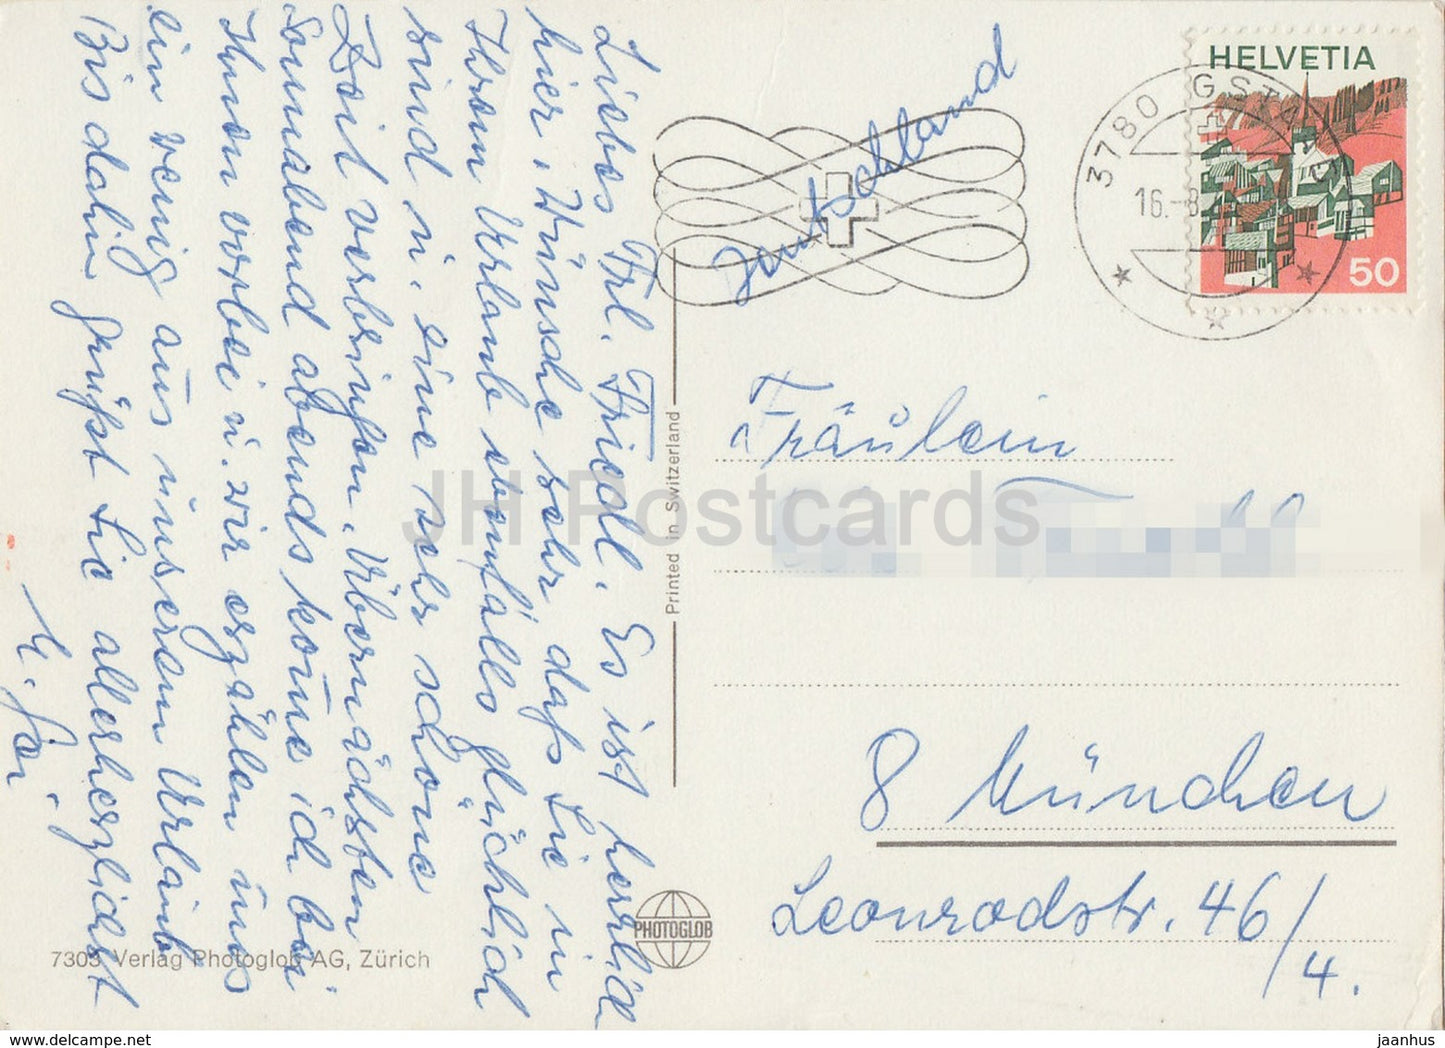 Liebes Frl. Friedl. Es ist herrlich
hier, Wünsche sehr daß Sie in
Ihrem Urlaub ebenfalls glücklich
sind u. eine sehr schöne
Zeit verbringen. Übernächsten
Sonnabend abends kom̄e ich bei
Ihnen vorbei u. wir erzählen uns
ein wenig aus unserem Urlaub
Bis dahin grüßt Sie allerherzlichst
Deutschland
HELVETIA
50
3780 GSTAAD
16.-8.
Fräulein
8 München
Leonrodstr. 46/
4.
Printed in Switzerland
PHOTOGLOB
7303 Verlag Photoglob AG, Zürich
JH Postcards
jaanhus www.delcampe.net